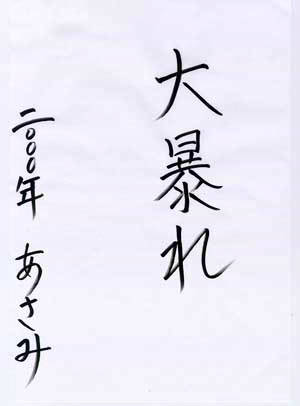 大暴れ
二〇〇〇年 あさみ